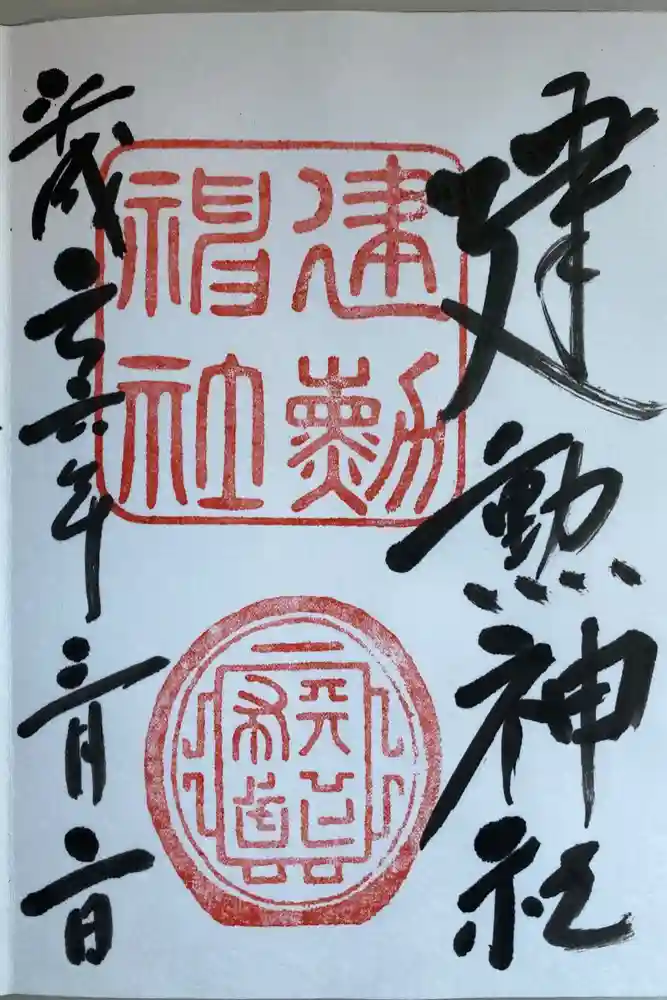 建勲神社
平成二十六年三月二日
建勲
神社